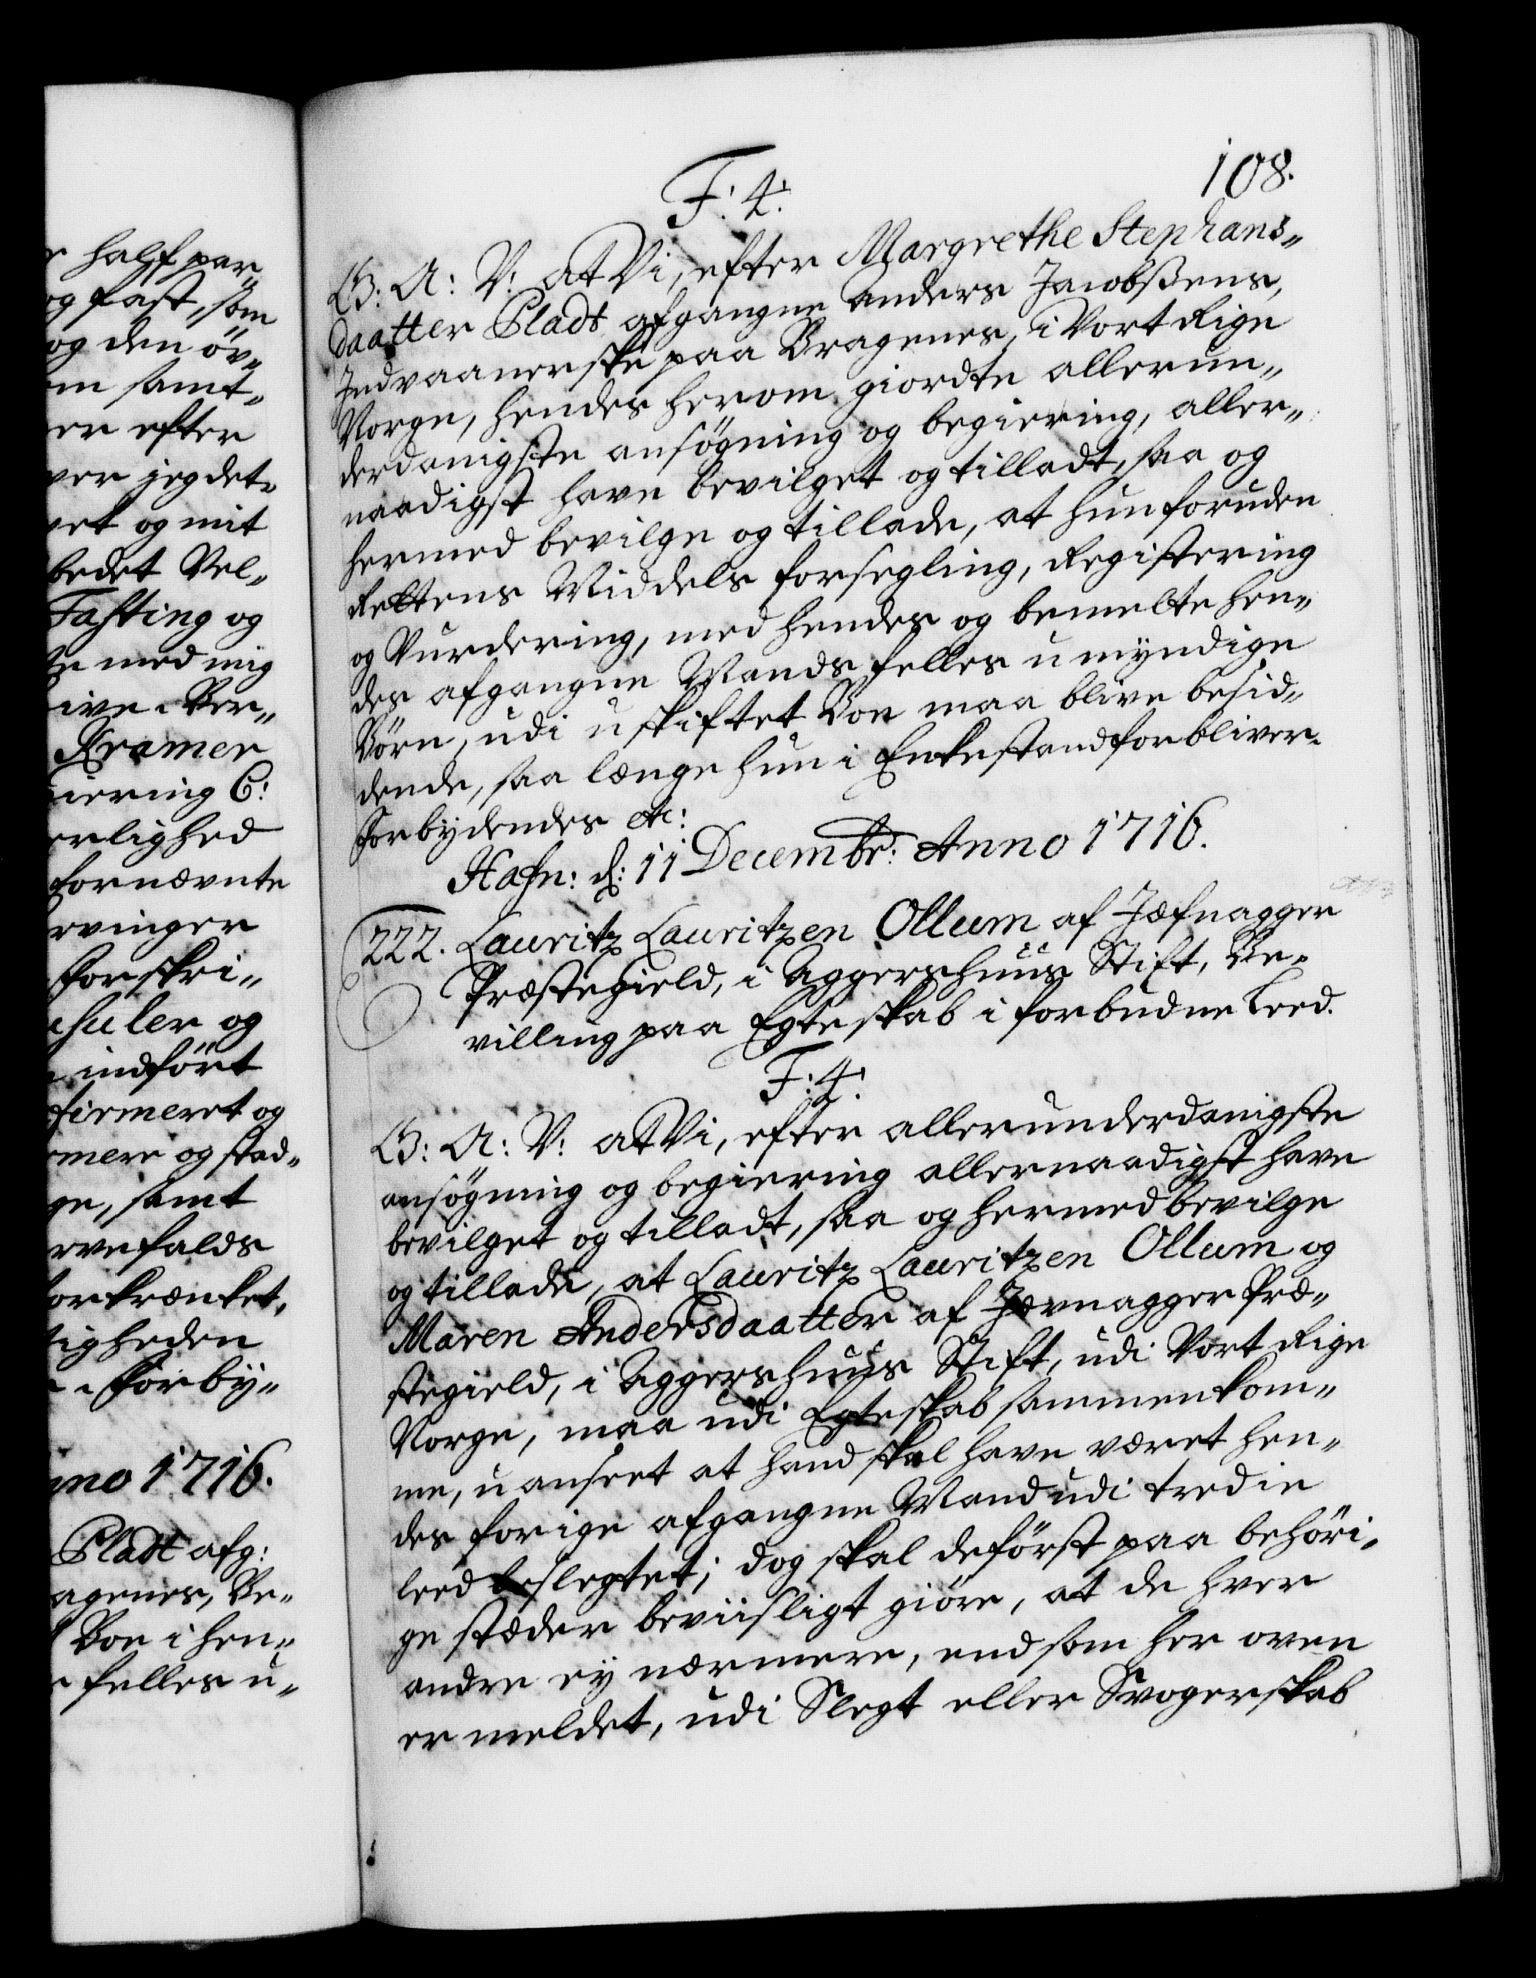 r half par„
og fast, som
og den öv„
em samt„
er efter
ver jeg det„
vet og mit
bedet Vel„
Fasting og
te med mig
ive. Ber„
Kramer
iering C:
erlighed
fornævnte
rvinger
forskri„
chuler og
indfört
firmeret og
mere og stad„
ge, samt
rvefalds
orkrænket,
tigheden
. Forby„
nno 1716.
Pladt afg:
agenes, Be„
Boe i hen„
e felles u„
108.
F: 4:
G: A: V: at Vi, efter Margrethe Stephans„
daatter Pladt afgangne Anders Jacobßens,
Indvaanerske paa Bragenes, i Vort Rige
Norge, hendes herom giordte allerun„
derdanigste ansøgning og begiering, aller„
naadigst have bevilget og tilladt, saa og
hermed bevilge og tillade, at hun foruden
Rettens Middels forsegling, Registering
og Vurdering, med hendes og bemelte hen„
des afgangne Mands felles umyndige
Börn, udi uskiftet Boe maa blive besid„
dende, saa længe hun i Enkestand forbliver.
Forbydendes etc:
Hafn: d: 11 Decembr: Anno 1716.
222. Lauritz Lauritzen Ollum af Jefnagger
Præstegield, i Aggershuus Stift, Be„
villing paa Egteskab i forbudne Leed.
F: 4:
G: A: V: at Vi, efter allerunderdanigste
ansögning og begiering allernaadigst have
bevilget og tilladt, saa og hermed bevilge
og tillade, at Lauritz Lauritzen Ollum og
Maren Andersdaatter af Jevnagger Præ„
stegield, i Aggershuus Stift, udi Vort Rige
Norge, maa udi Egteskab sammenkom„
me, uanseet at hand skal have været hen„
des forige afgangne Mand udi tredie
leed beslegtet; dog skal de först paa behöri„
ge stæder beviisligt giöre, at de hver
andre ey nærmere, end som her oven
er meldet, udi Slegt eller Svogerskab